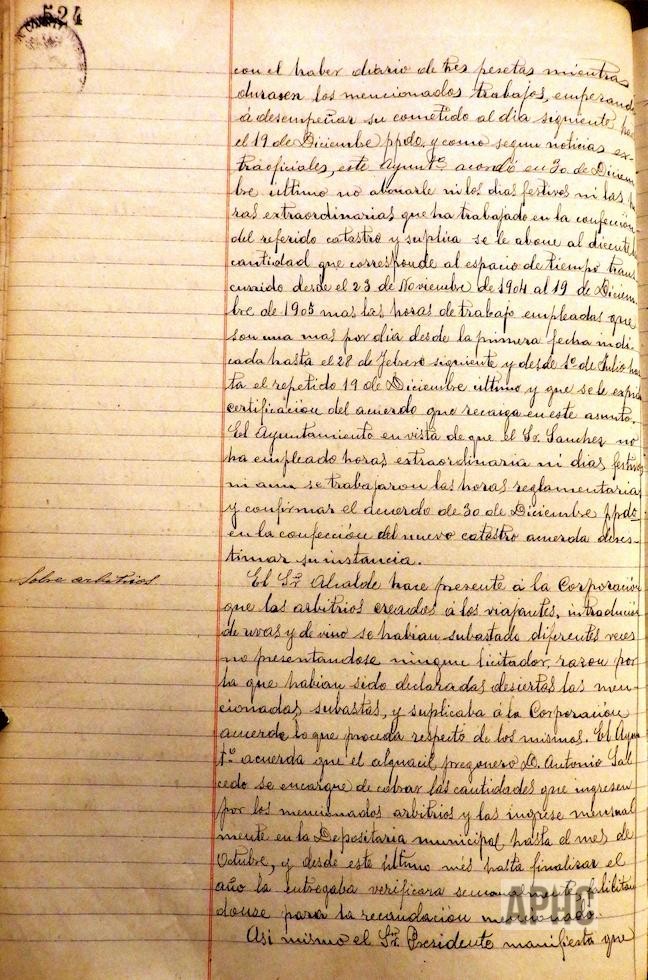 524
con el haber diario de tres pesetas mientras
durasen los mencionados trabajos, empezando
á desempeñar su cometido al dia siguiente
el 19 de Diciembre ppdo. y como segun noticias ex-
traoficiales, este Ayuntº acordó en 30 de Diciem-
bre ultimo no abonarle ni los dias festivos ni las ho
ras extraordinarias que ha trabajado en la confección
del referido catastro y suplica se le abone al
cantidad que corresponde al espacio de tiempo trans
currido desde el 23 de Noviembre de 1904 al 19 de Diciem-
bre de 1905 mas las horas de trabajo empleadas que
son una mas por dia desde la primera fecha indi-
cada hasta el 28 de Febrero siguiente y desde 1º de Julio has
ta el repetido 19 de Diciembre ultimo y que se le expida
certificación del acuerdo que recaiga en este asunto.
El Ayuntamiento en vista de que el Sr. Sanchez no
ha empleado horas extraordinaria ni dias festivos
ni aun se trabajaron las horas reglamentarias
y confirmar el acuerdo de 30 de Diciembre ppdo
en la confección del nuevo catastro acuerda deses-
timar su instancia.
Sobre arbitrios
El Sr. Alcalde hace presente á la Corporación
que las arbitrios creados á los viajantes, introducción
de uvas y de vino se habian subastado diferentes veces
no presentandose ningun licitador, razon por
la que habian sido declaradas desiertas las men-
cionadas subastas, y suplicaba á la Corporación
acuerde lo que proceda respecto de los mismos. El Ayun
tº acuerda que el alguacil pregonero D. Antonio Sal
cedo se encargue de cobrar las cantidades que ingresen
por los mencionados arbitrios y las ingrese mensual
mente en la Depositaria municipal, hasta el mes de
Octubre, y desde este último mes hasta finalizar el
año la entregaba verificara facilitan
dose para la recaudación
Asi mismo el Sr. Presidente manifiesta que
APHC